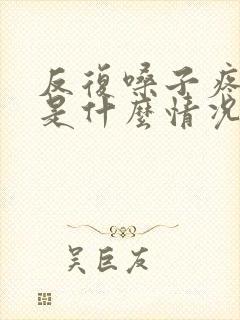 反復嗓子疼
是什麼情況
吴巨友